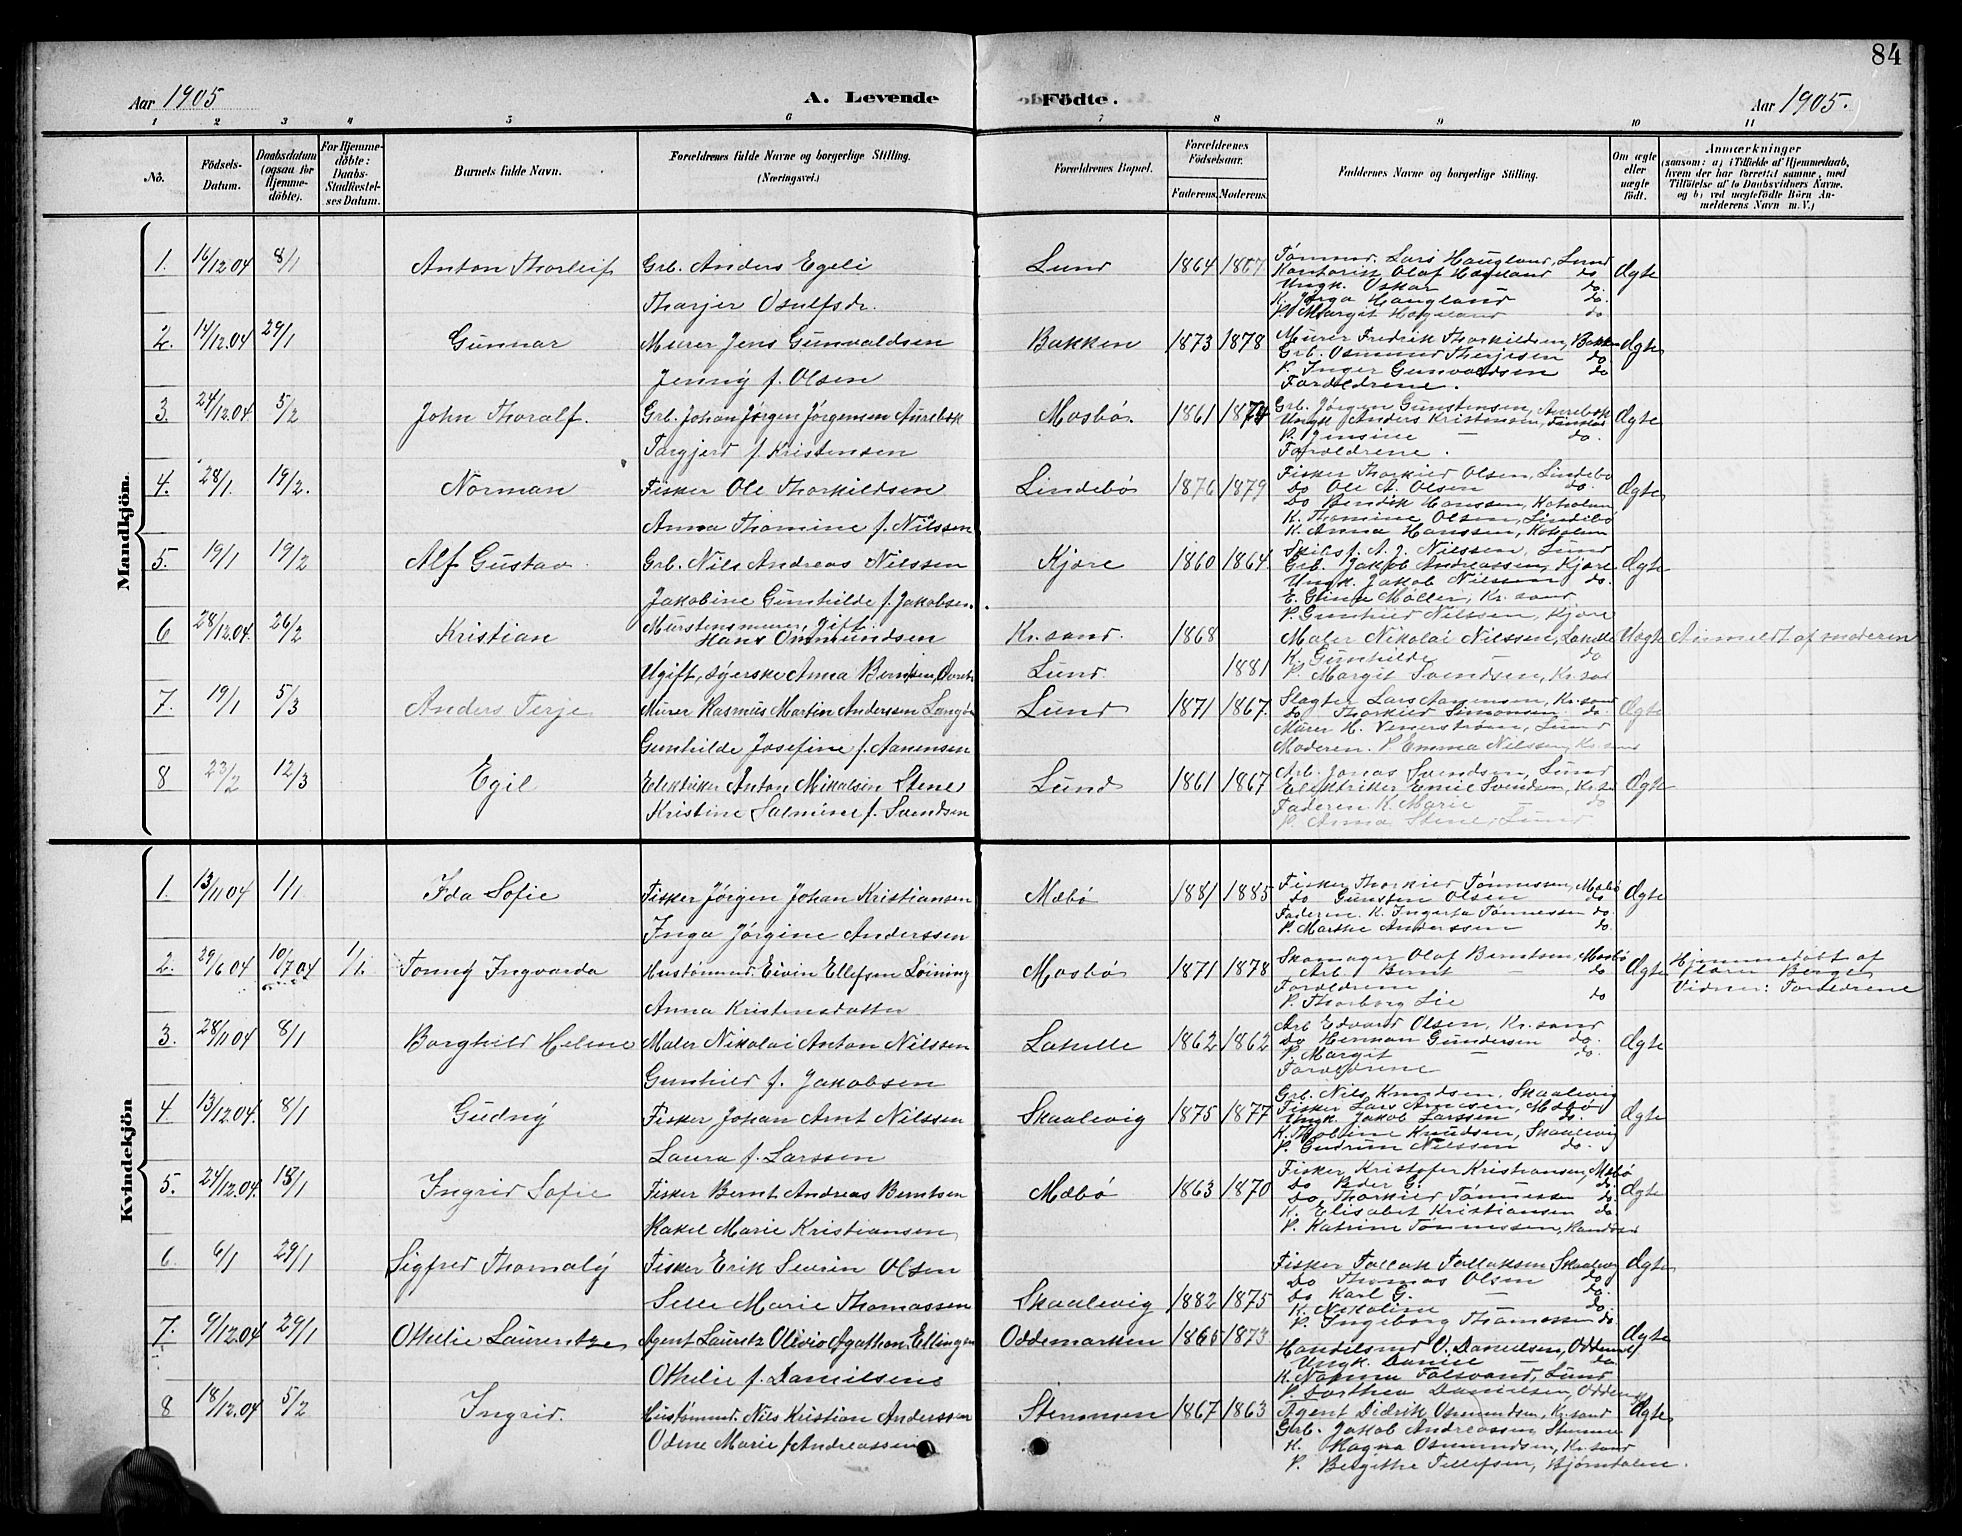 84
Aar 1905
A. Levende Födte.
Aar 1905.
1 2 3 4 5 6 7 8 9 10 11
No.
Födsels-Datum.
Daabsdatum (ogsaa for Hjemmedöbte).
For Hjemmedöbte: Daabs-Stadfæstelses Datum.
Barnets fulde Navn.
Forældrenes fulde Navne og borgerlige Stilling. (Næringsvei.)
Forældrenes Bopæl.
Forældrenes Födselsaar.
Faderens. Moderens.
Faddernes Navne og borgerlige Stilling.
Om ægte eller uægte födt.
Anmærkninger
(saasom: a) i Tilfælde af Hjemmedaab, hvem der har forrettet samme, med Tilföielse af to Daabsvidners Navne. og b) ved uægtefödte Börn Anmelderens Navn m. V.)
Mandkjön.
1. 16/12.04 8/1 Anton Thorleif Grb. Anders Egeli Lund 1864 1867 Ægte
Tharjer Osulfsdr.
Tømmerm. Lars Haugland, Lund
Kontorist Olaf Haugland do
Ungk. Oskar do.
K. Jørga Haugland do.
P. Margit Haugland do
2. 14/12.04 29/1 Gunnar Murer Jens Gunvaldsen Bakken 1873 1878 Ægte
Jenny f. Olsen
Murer Fredrik Thorkildsen, Bakken
Grb. Osmund Therjesen do.
P. Inger Gunvaldsen do
Forældrene.
3. 24/12.04 5/2 John Thoralf. Grb. Johan Jørgen Jørgensen Aurebæk Mosbø. 1861 1874 Ægte
Targjerd f. Kristensen
Grb. Jørgen Gunstensen, Aurebæk
Ungk. Anders Kristensen,
P. Jensine — do.
Forældrene.
4. 28/1. 19/2. Norman Fisker Ole Thorkildsen Lindebø 1876 1879 Ægte
Anna Thomine f. Nilssen
Fisker Thorkild Olsen, Lindebø
Do Ole A. Olsen do.
Do Bendik Hanssen, Kaholmen
K. Thomine Olsen, Lindebø
K. Anna Hanssen, Kaholmen
5. 19/1 19/2 Alf Gustav Grb. Nils Andreas Nilssen Kjøre 1860 1864 Ægte
Jakobine Gunhilde f. Jakobsen.
Skibsf. A. J. Nilssen, Lund
Grb. Jakob Andreassen, Kjøre
Ungk. Jakob Nilssen do.
E. Gline Møller, Kr.sand
P. Gunhild Nilssen, Kjøre
6 28/12.04. 26/2 Kristian Murstensmurer, gift Hans Ommundsen Kr.sand. 1868 Uægte Anmeldt af moderen
Ugift, syerske Anna Berntsen, Lund. 1881
Maler Nikolai Nilssen, Lahelle
K. Gunhilde — do
P. Margit Svendsen, Kr.sand
7. 19/1 5/3 Anders Terje Murer Rasmus Martin Andersen Langø Lund 1871 1867. Ægte
Gunhilde Josefine f. Aanensen
Slagter Lars Aanensen, Kr.sand
do Thorkild Simonsen do.
Murer H. Venerstrøm, Lund
Moderen. P. Emma Nilssen, Kr.sand
8 23/2 12/3 Egil Elektriker Anton Mikalsen Stene Lund 1861 1867 Ægte
Kristine Salmine f. Svendsen
Arb. Jonas Svendsen, Lund
Elektriker Emil Svendsen, Kr.sa
Faderen K. Marie — do
P. Anna Stene, Lund
Kvindekjön
1. 13/11 04 1/1 Ida Sofie Fisker Jørgen Johan Kristiansen Mæbø 1881 1885 Ægte
Inga Jørgine Anderssen
Fisker Thorkild Tønnessen, Mæbø
do Gunsten Olsen do
Faderen. K. Ingarta Tønnessen do.
P. Marthe Anderssen do.
2. 29/6 04 10/7.04 1/1. Tonny Ingvarda Hustømmerm. Eivin Ellefsen Løining Mosbø 1871 1878 Ægte Hjemmedøbt af
Anna Kristensdatter
Skomager Olaf Berntsen, Mosbø
Arb. Bernt — do
Forældrene
P. Thorborg Lie do
Klara Berge
Vidner: Forældrene
3. 28/11 04 8/1 Borghild Helene Maler Nikolai Anton Nilssen Lahelle 1862 1862 Ægte
Gunhild f. Jakobsen
Arb Edvard Olsen, Kr.sand
Do Herman Gundersen do.
P. Margit — do.
Forældrene
4 13/12.04. 8/1 Gudny Fisker Johan Arnt Nilssen Skaalevig 1875 1877 Ægte
Laura f. Larssen
Grb. Nils Knudsen, Skaalevig
Fisker Lars Arnesen, Mæbø
Ungk. Jakob Larssen do.
K. Tholine Knudsen, Skaalevig
P. Gudrun Nilssen do.
5. 24/12.04. 15/1 Ingrid Sofie Fisker Bernt Andreas Berntsen Mæbø 1863 1870 Ægte
Rakel Marie Kristiansen
Fisker Kristofer Kristiansen, Mæbø
Do Peder G. do.
Do. Thorkild Tønnessen do.
K. Elisabet Kristiansen do.
P. Katrine Tønnessen, Randøen
6. 6/1 29/1 Sigfred Thomaly Fisker Erik Severin Olsen Ægte
Selle Marie Thomassen Skaalevig 1882 1875
Fisker Tallak Tallaksen Skaalevig
Do Thomas Olsen do.
Do Karl G. — do.
K. Nikoline — do.
P. Ingeborg Thomassen do.
7. 9/12.04 29/1 Othelie Laurentze Agent Lauritz Olivio Agathon Ellingsen Oddemarken 1865 1873 Ægte
Othelie f. Danielsen
Handelsmd O. Danielsen, Oddemark
Ungk. Daniel — do.
K. Norma Falsvand, Lund
P. Dorthea Danielsen, Oddemark
8 18/12.04 5/2 Ingrid. Hustømmerm. Nils Kristian Anderssen Stemmen 1867 1863 Ægte
Odine Marie f. Andreassen
Agent Didrik Osmundsen, Kr.sand
Grb. Jakob Andreassen, Stemmen
K. Ragna Osmundsen, Kr.sand
P. Bergithe Tellefsen, Bjørndalen.